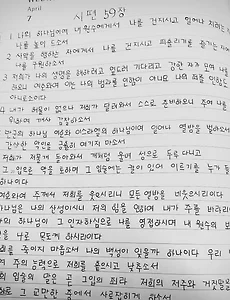 April
7 시편 59장
1 나의 하나님이여 내 원수에게서 나를 건지시고 일어나 치려는
나를 높이 드소서
2 사악을 행하는 자에게서 나를 건지시고 피 흘리기를 즐기는
나를 구원하소서
3 저희가 나의 생명을 해하려고 엎드려 기다리고 강한 자가 모여 나를
여호와여 이는 나의 범과를 인함이 아니요 나의 죄를 인함도
아니로소이다
4 내가 허물이 없으나 저희가 달려와서 스스로 준비하오니 주여 나를
위하여 깨사 감찰하소서
만군의 하나님 여호와 이스라엘의 하나님이여 일어나 열방을 벌하소서
간사한 악인을 긍휼히 여기지 마소서
저희가 저물게 돌아와서 개처럼 울며 성으로 두루 다니고
그 입으로 악을 토하며 그 입술에는 칼이 있어 이르기를 누가 들
하나이다
여호와여 주께서 저희를 웃으시리니 모든 열방을 비웃으시리이다
하나님은 나의 산성이시니 저의 힘을 인하여 내가 주를 바라리
나의 하나님이 그 인자하심으로 나를 영접하시며 내 원수의
나로 목도케 하시리이다
저희를 죽이지 마옵소서 나의 백성이 잊을까 하나이다 우리
주의 능력으로 저희를 흩으시고 낮추소서
입술의 말은 곧 그 입의 죄라 저희의 저주와 거짓말
저희로 그 교만한 중에서 사로잡히게 하소서